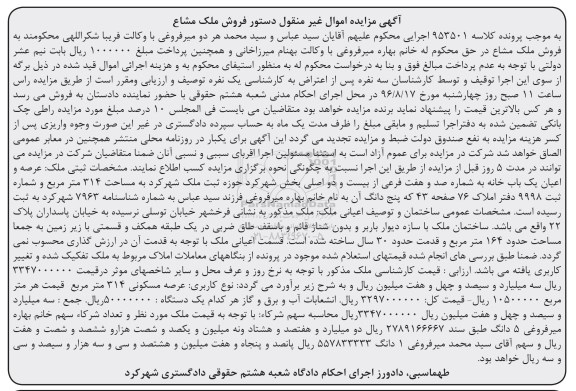 آگهی مزایده اموال غیر منقول دستور فروش ملک مشاع
به موجب پرونده کلاسه ۹۵۳۵۰۱ اجرایی محکوم علیهم آقایان سید عباس و سید محمد هر دو میرفروغی با وکالت فریبا شکراللهی محکومند به
فروش ملک مشاع در حق محکوم له خانم بهاره میرفروغی با وکالت بهنام میرزاخانی و همچنین پرداخت مبلغ ۱۰۰۰۰۰۰ ریال بابت نیم عشر
دولتی با توجه به عدم پرداخت مبالغ فوق و بنا به درخواست محکوم له به منظور استیفای محکوم به و هزینه اجرائی اموال قید شده در ذیل برگه
از سوی این اجرا توقیف و توسط کارشناسان سه نفره پس از اعتراض به کارشناسی یک نفره توصیف و ارزیابی ومقرر است از طریق مزایده راس
ساعت ۱۱ صبح روز چهارشنبه مورخ ۹۶/۸/۱۷ در محل اجرای احکام مدنی شعبه هشتم حقوقی با حضور نماینده دادستان به فروش می رسد
و هر کس بالاترین قیمت را پیشنهاد نماید برنده مزایده خواهد بود متقاضیان می بایست فی المجلس ۱۰ درصد مبلغ مورد مزایده راطی چک
بانکی تضمین شده به دفتراجرا تسلیم و مابقی مبلغ را ظرف مدت یک ماه به حساب سپرده دادگستری در غیر این صورت وجوه واریزی پس از
کسر هزینه مزایده به نفع صندوق دولت ضبط و مزایده تجدید می گردد این آگهی برای یکبار در روزنامه محلی منتشر همچنین در معابر عمومی
الصاق خواهد شد شرکت در مزایده برای عموم آزاد است به استثناء مسئولین اجرا اقربای سببی و نسبی آنان ضمنا متقاضیان شرکت در مزایده می
توانند در مدت ۵ روز قبل از مزایده از طریق این اجرا نسبت به چگونگی نحوه برگزاری مزایده کسب اطلاع نمایند. مشخصات ثبتی ملک: عرصه و
اعیان یک باب خانه به شماره صد و هفت فرعی از بیست و دو اصلی بخش شهرکرد حوزه ثبت ملک شهرکرد به مساحت ۳۱۴ متر مربع و شماره
ثبت ۹۹۹۸ دفتر املاک ۷۶ صفحه ۴۳ که پنج دانگ آن به نام خانم بهاره میرفروغی فرزند سید عباس به شماره شناسنامه ۷۹۶۳ شهرکرد به ثبت
رسیده است. مشخصات عمومی ساختمان و توصیف اعیانی ملک: ملک مذکور به نشانی فرخشهر خیابان توسلی نرسیده به خیابان پاسداران پلاک
۲۲ واقع می باشد. ساختمان ملک با سازه دیوار باربر و بدون شناژ قائم و باسقف طاق ضربی در یک طبقه همکف و قسمتی با زیر زمین به جمعا
مساحت حدود ۱۶۴ متر مربع و قدمت حدود ۳۰ سال ساخته شده است قسمت اعیانی ملک با توجه به قدمت آن در ارزش گذاری محسوب نمی
گردد. ضمنا طبق بررسی های انجام شده قیمتهای استعلام شده موجود در پرونده از بنگاههای معاملات املاک مربوط به ملک تفکیک شده و تغییر
کاربری یافته می باشد. ارزیابی : قیمت کارشناسی ملک مذکور با توجه به نرخ روز و عرف محل و سایر شاخصهای موثر درقیمت ۳۳۴۷۰۰۰۰۰۰
ریال سه میلیارد و سیصد و چهل و هفت میلیون ریال و به شرح زیر برآورد می گردد: نوع کاربری: عرصه مسکونی ۳۱۴ متر مربع قیمت هر متر
مربع ۱۰۵۰۰۰۰۰ ریال- قیمت کل: ۳۲۹۷۰۰۰۰۰۰ ریال. انشعابات آب و برق و گاز هر کدام یک دستگاه : ۵۰۰۰۰۰۰۰ریال. جمع : سه میلیارد
و سیصد و چهل و هفت میلیون ریال ۳۳۴۷۰۰۰۰۰۰ریال محاسبه سهم شرکاء: با توجه به قیمت ملک مورد نظر و تعداد شرکاء سهم خانم بهاره
میرفروغی ۵ دانگ طبق سند ۲۷۸۹۱۶۶۶۶۷ ریال دو میلیارد و هفتصد و هشتاد ونه میلیون و یکصد و شصت هزارو ششصد و شصت و هفت
ریال و سهم آقای سید محمد میرفروغی ۱ دانگ ۵۵۷۸۳۳۳۳۳ ریال پانصد و پنجاه و هفت میلیون و هشتصد و سی و سه هزار و سیصد و سی
و سه ریال خواهد بود.
طهماسبی، دادورز اجرای احکام دادگاه شعبه هشتم حقوقی دادگستری شهرکرد